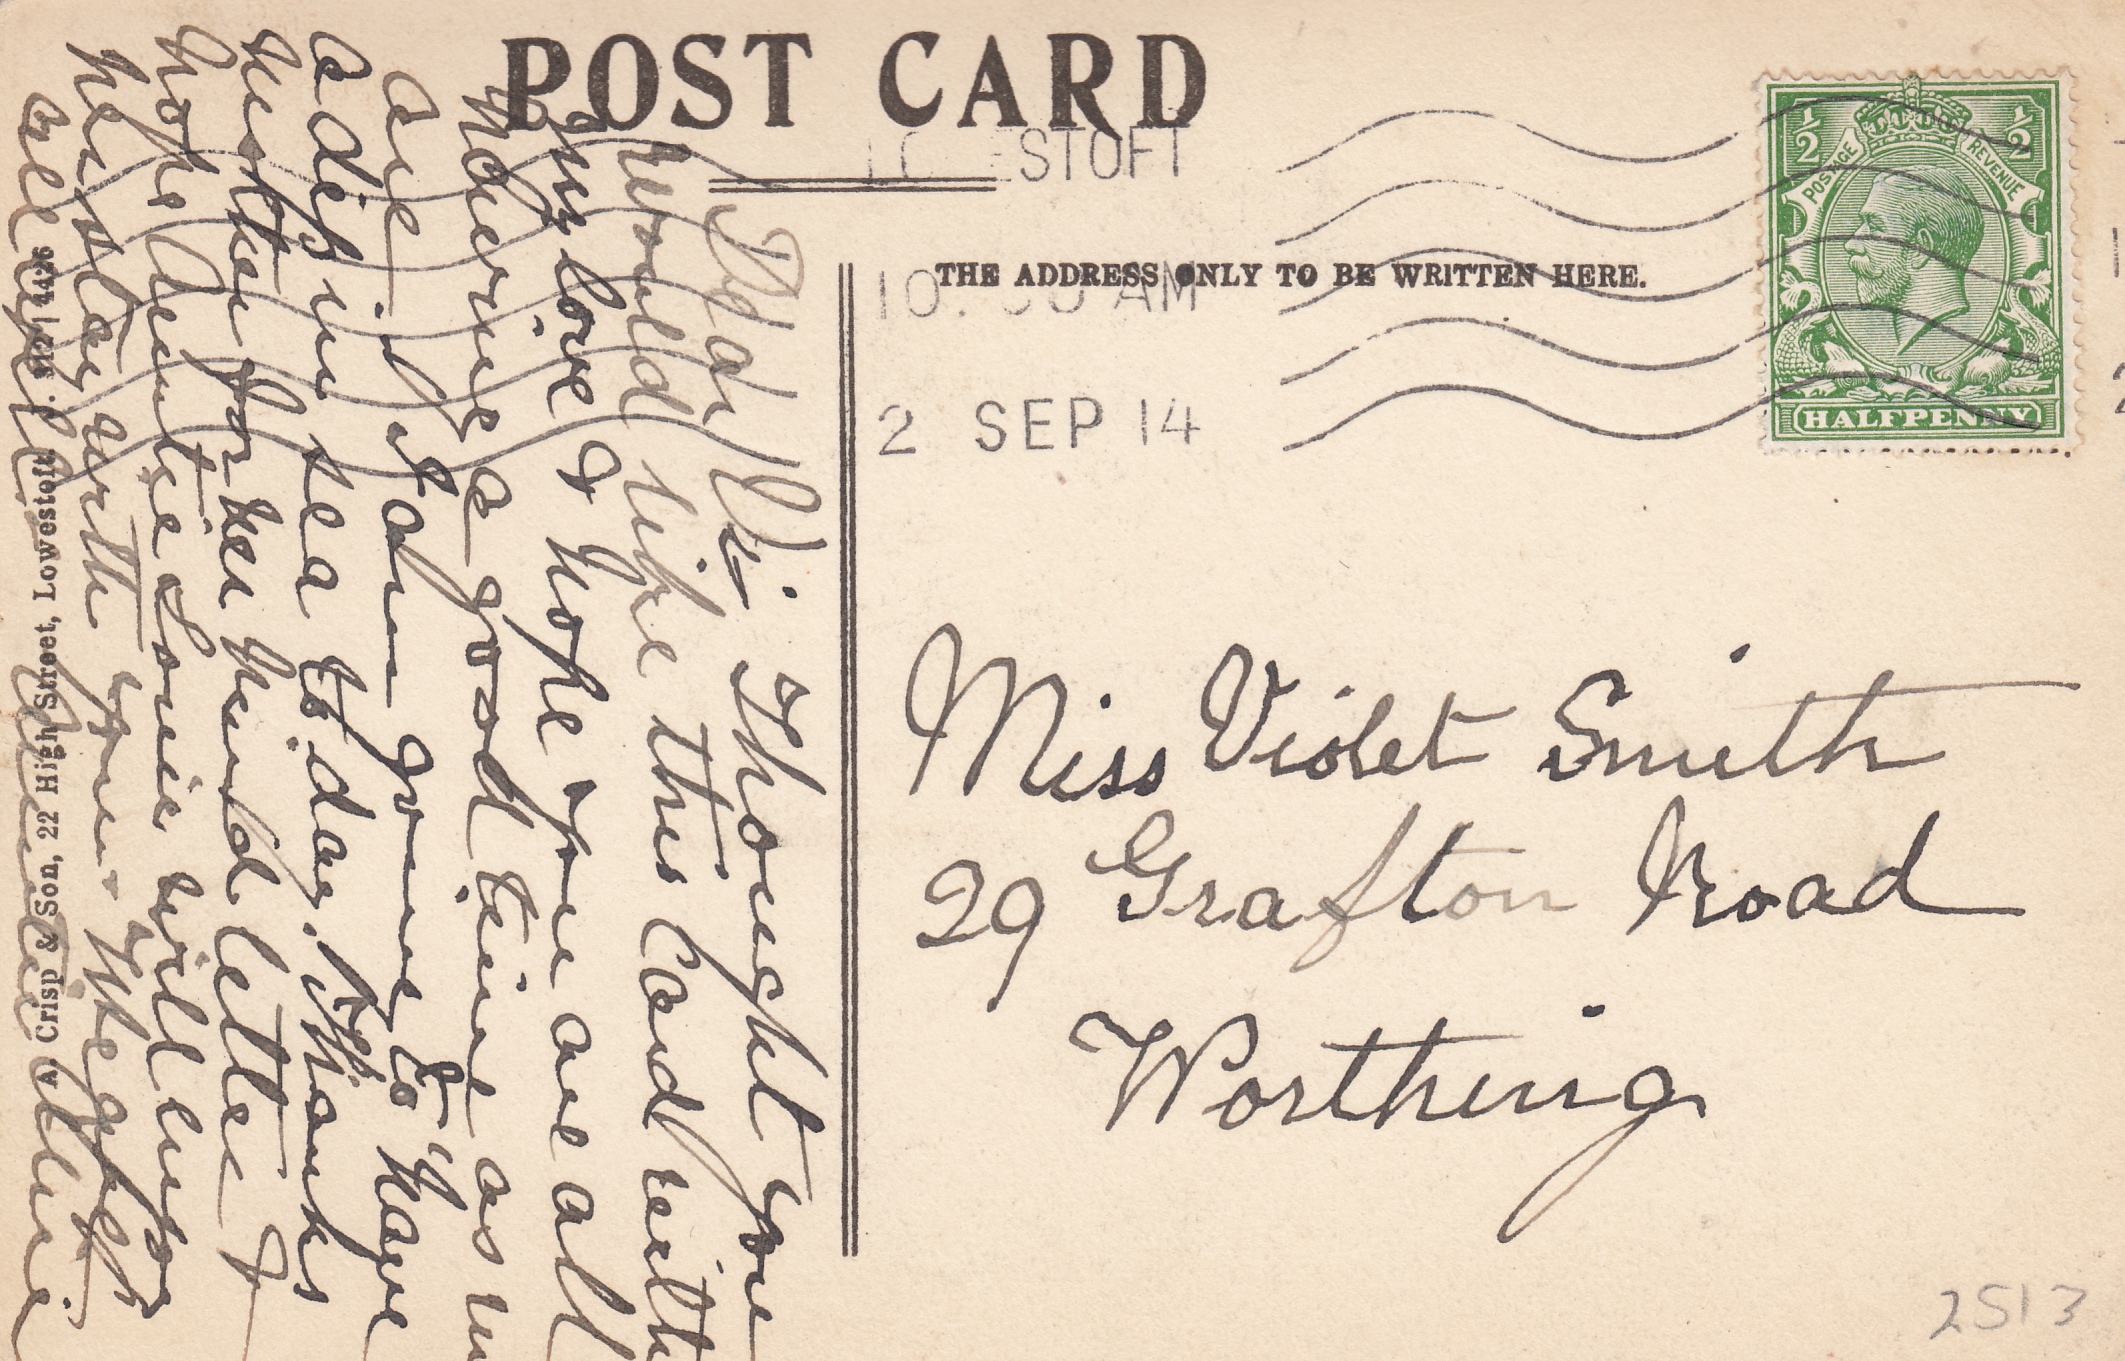 POST CARD
LOWESTOFT
THE ADDRESS ONLY TO BE WRITTEN HERE.
10. 30 AM
2 SEP 14
½ ½
POSTAGE REVENUE
HALFPENNY
Miss Violet Smith
29 Grafton Road
Worthing
2513
Dear Vi. Thought you
would like this Card with
my love & hope you are all
having a good time as we
are. I am going to have
a dip in sea to day. Thanks
Mother for her kind letter I
hope Auntie Louie will enjoy
her stay with you.
all Love Auntie
A. Crisp & Son, 22 High Street, Lowestoft. S. 312 | 4426